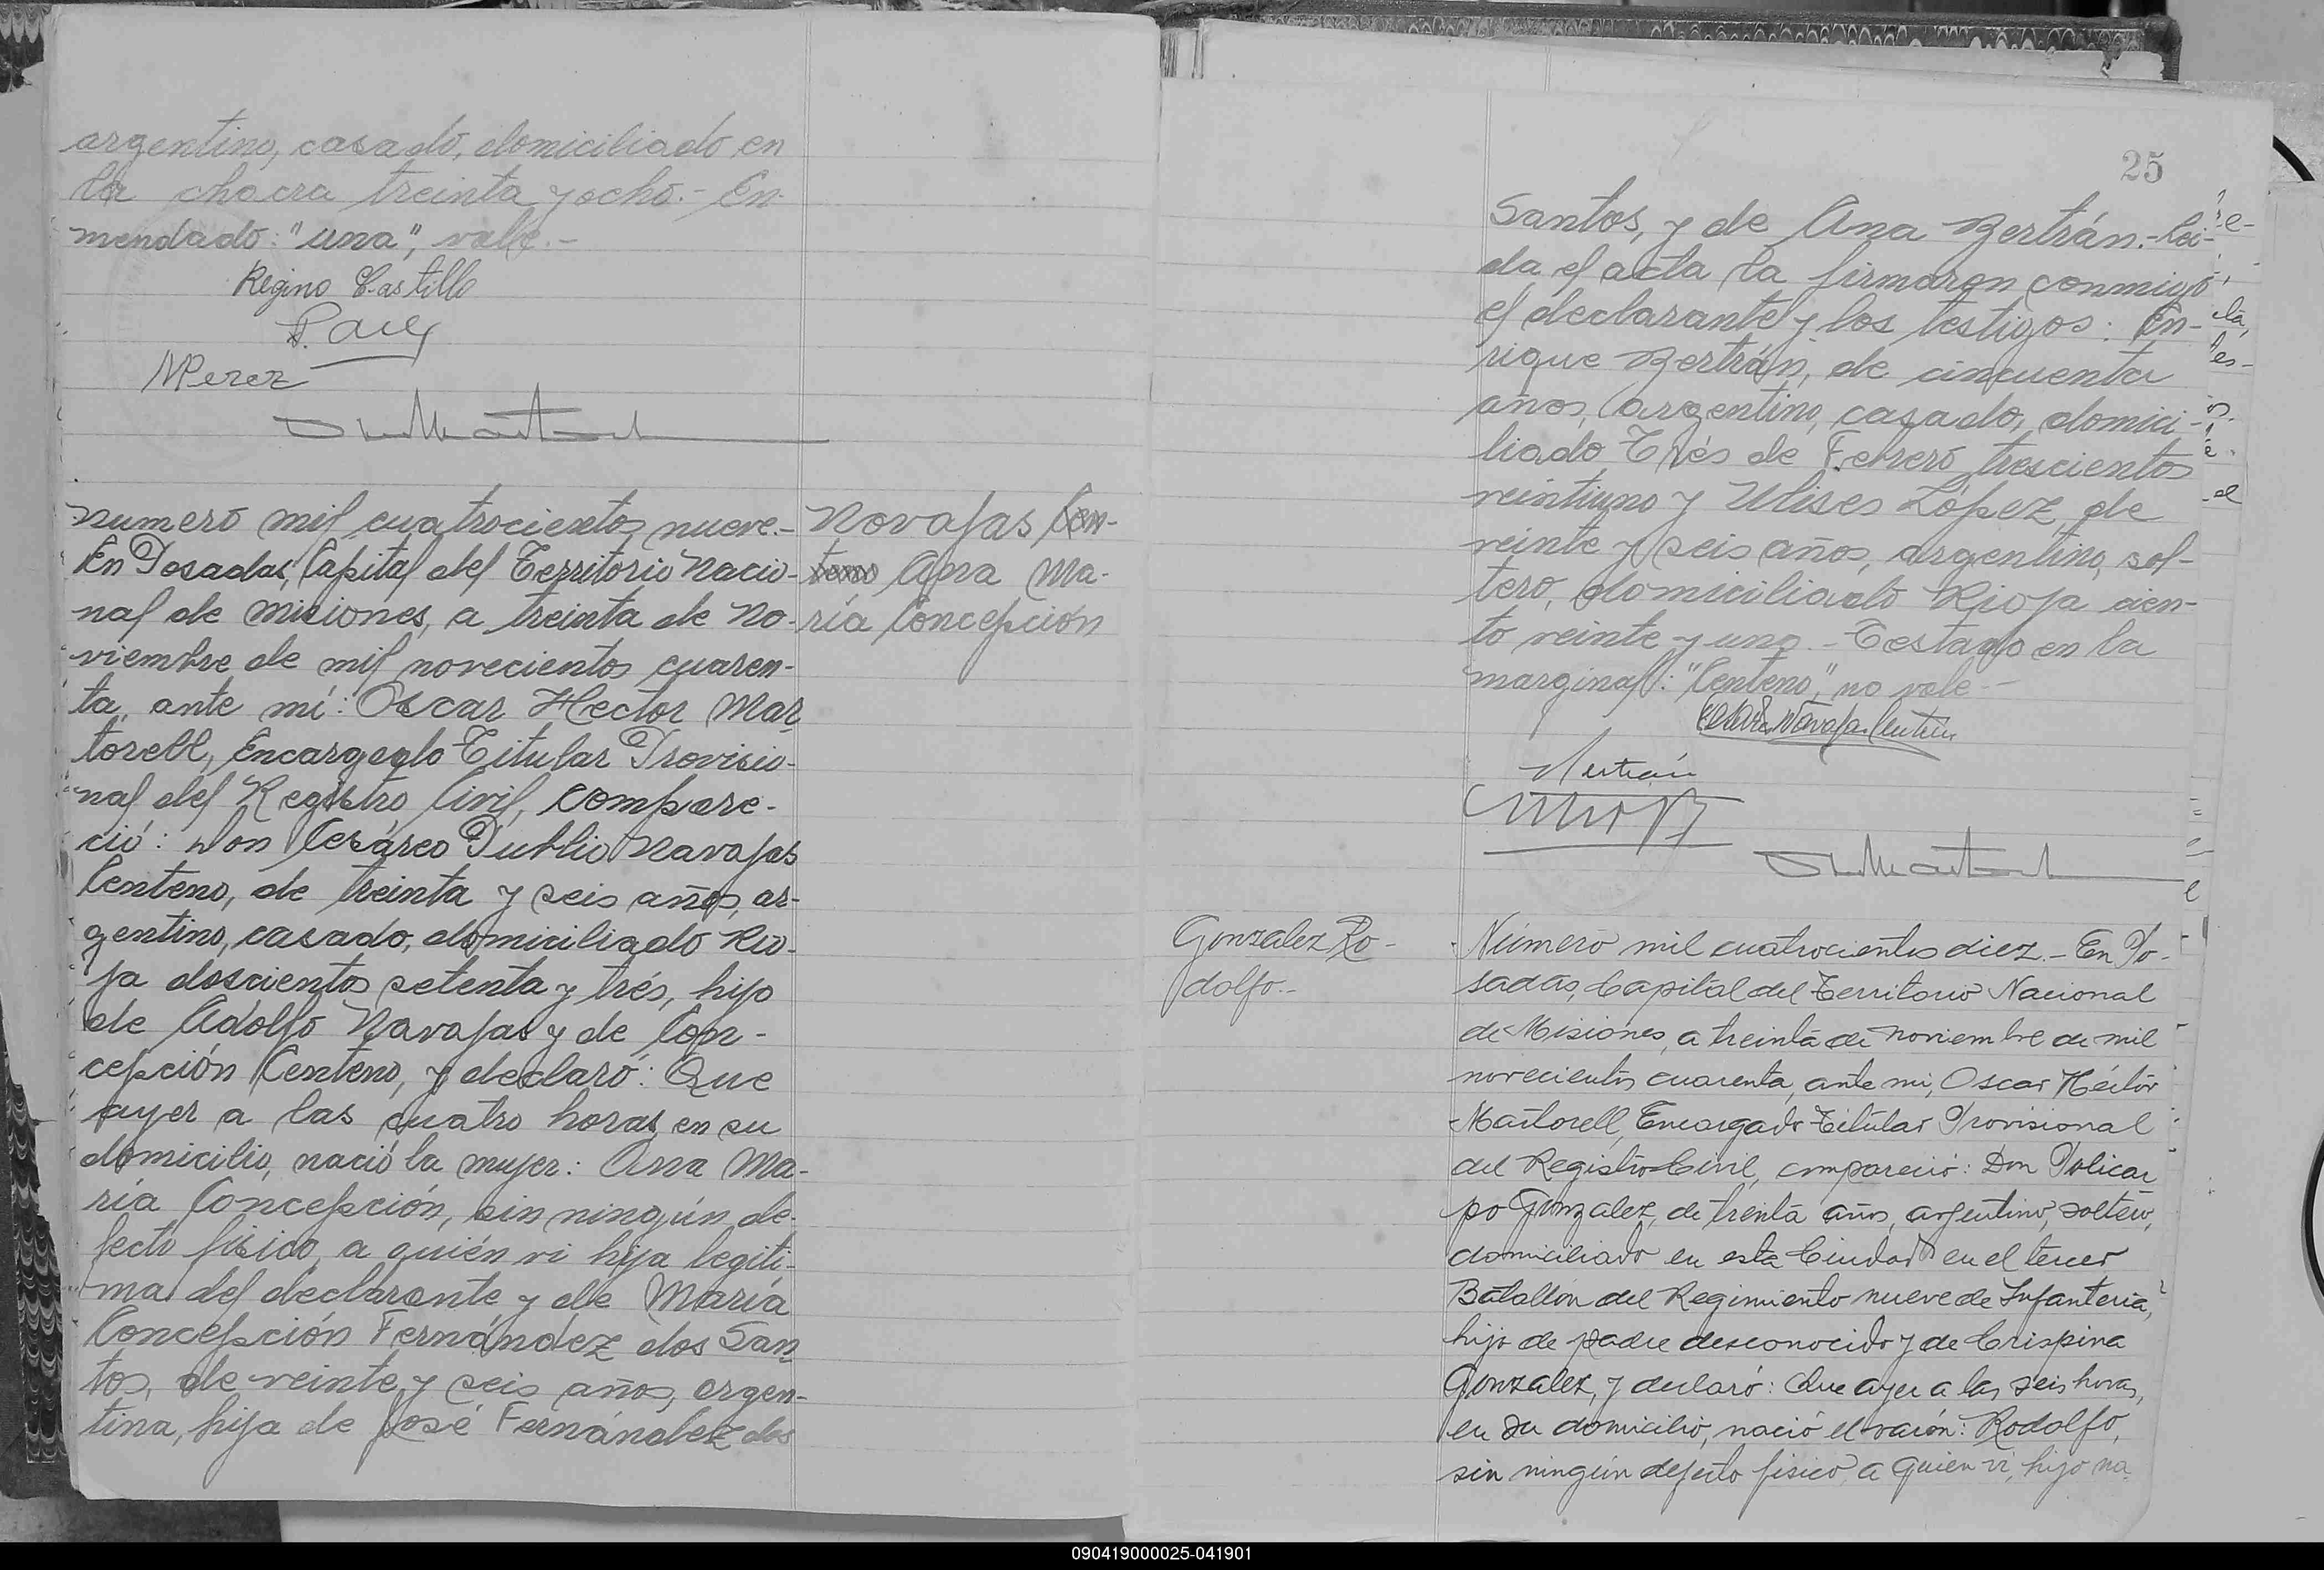 argentino, casado, domiciliado en
la chacra treinta y ocho.- En-
mendado: "una", vale.-
Regino Castillo
MPerez
Numero mil cuatrocientos nueve.-
En Posadas, Capital del Territorio Nacio-
nal de Misiones, a treinta de No-
viembre de mil novecientos cuaren-
ta, ante mí: Oscar Hector Mar
torell, Encargado Titular Provisio-
nal del Registro Civil, compare-
ció: Don Cesáreo Publio Navajas
Centeno, de treinta y seis años, ar-
gentino, casado, domiciliado Rio-
ja doscientos setenta y trés, hijo
de Adolfo Navajas y de Con-
cepción Centeno, y declaró: Que
ayer a las cuatro horas, en su
domicilio, nació la mujer: Ana Ma-
ría Concepción, sin ningún de-
fecto físico, a quién vi hija legíti-
ma del declarante y de María
Concepción Fernández dos San
tos, de veinte y seis años, argen-
tina, hija de José Fernández dos
Navajas Cen-
teno Ana Ma-
ría Concepción
25
Santos, y de Ana Bertrán.- Leí-
da el acta la firmaron conmigo
el declarante y los testigos: En-
rique Bertrán, de cincuenta
años, argentino, casado, domici-
liado Trés de Febrero trescientos
veintiuno y Ulises López, de
veinte y seis años, argentino, sol-
tero, domiciliado Rioja cien-
to veinte y uno.- Testado en la
marginal: "Centeno", no vale.-
Navajas Centeno
Bertrán
Gonzalez Ro-
dolfo.-
Número mil cuatrocientos diez.- En Po-
sadas, Capital del Territorio Nacional
de Misiones, a treinta de Noviembre de mil
novecientos cuarenta, ante mi, Oscar Héctor
Martorell, Encargado Titular Provisional
del Registro Civil, compareció: Don Policar
po Gonzalez, de treinta años, argentino, soltero,
domiciliado en esta Ciudad en el tercer
Batallón del Regimiento nueve de Infantería,
hijo de padre desconocido y de Crispina
Gonzalez, y declaró: Que ayer a las seis horas,
en su domicilio, nació el varón: Rodolfo,
sin ningún defecto físico, a quien vi, hijo na
090419000025-041901